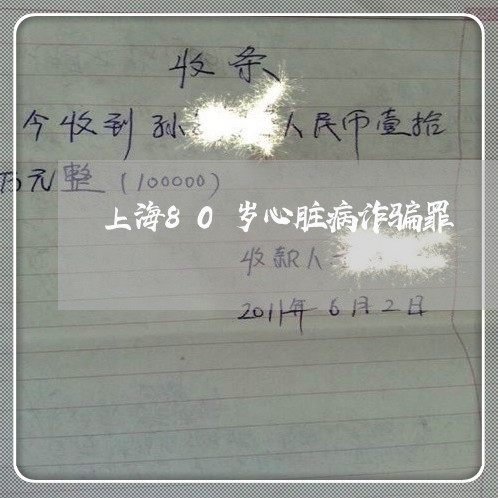 收条
今收到孙 人民币壹拾
万元整（100000）
上海80岁心脏病诈骗罪
收款人
2011年6月2日